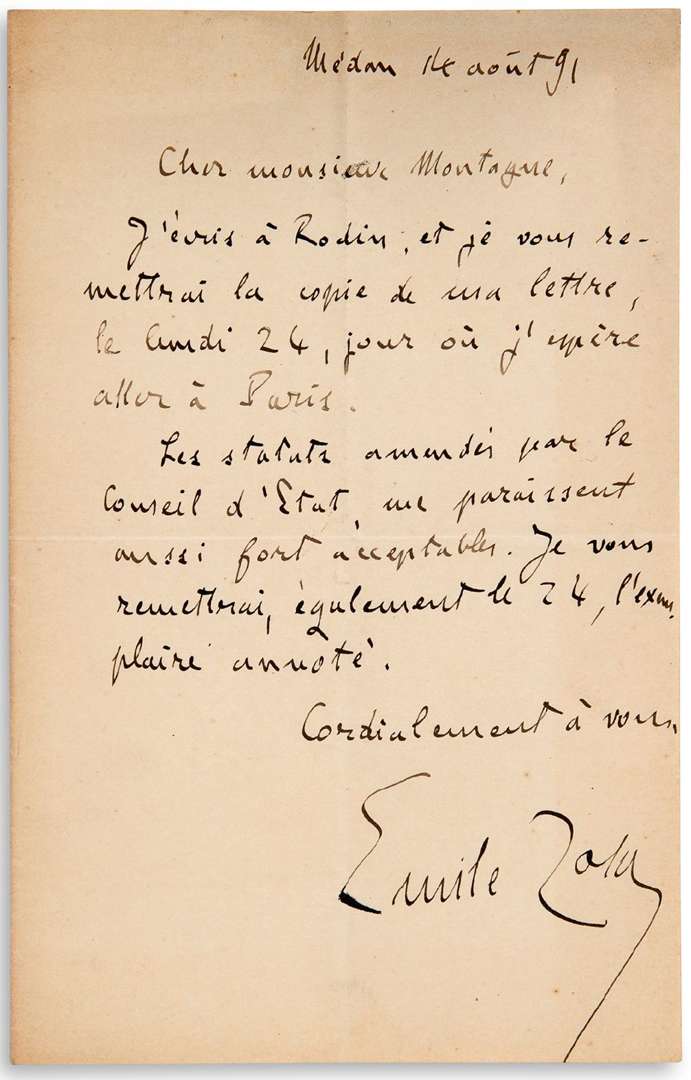 Médan 14 août 91
Cher monsieur Montagne,
J'écris à Rodin, et je vous re-
mettrai la copie de ma lettre,
le lundi 24, jour où j'espère
aller à Paris.
Les statuts amendés par le
Conseil d'Etat, me paraissent
aussi fort acceptables. Je vous
remettrai, également le 24, l'exem-
plaire annoté.
Cordialement à vous,
Emile Zola